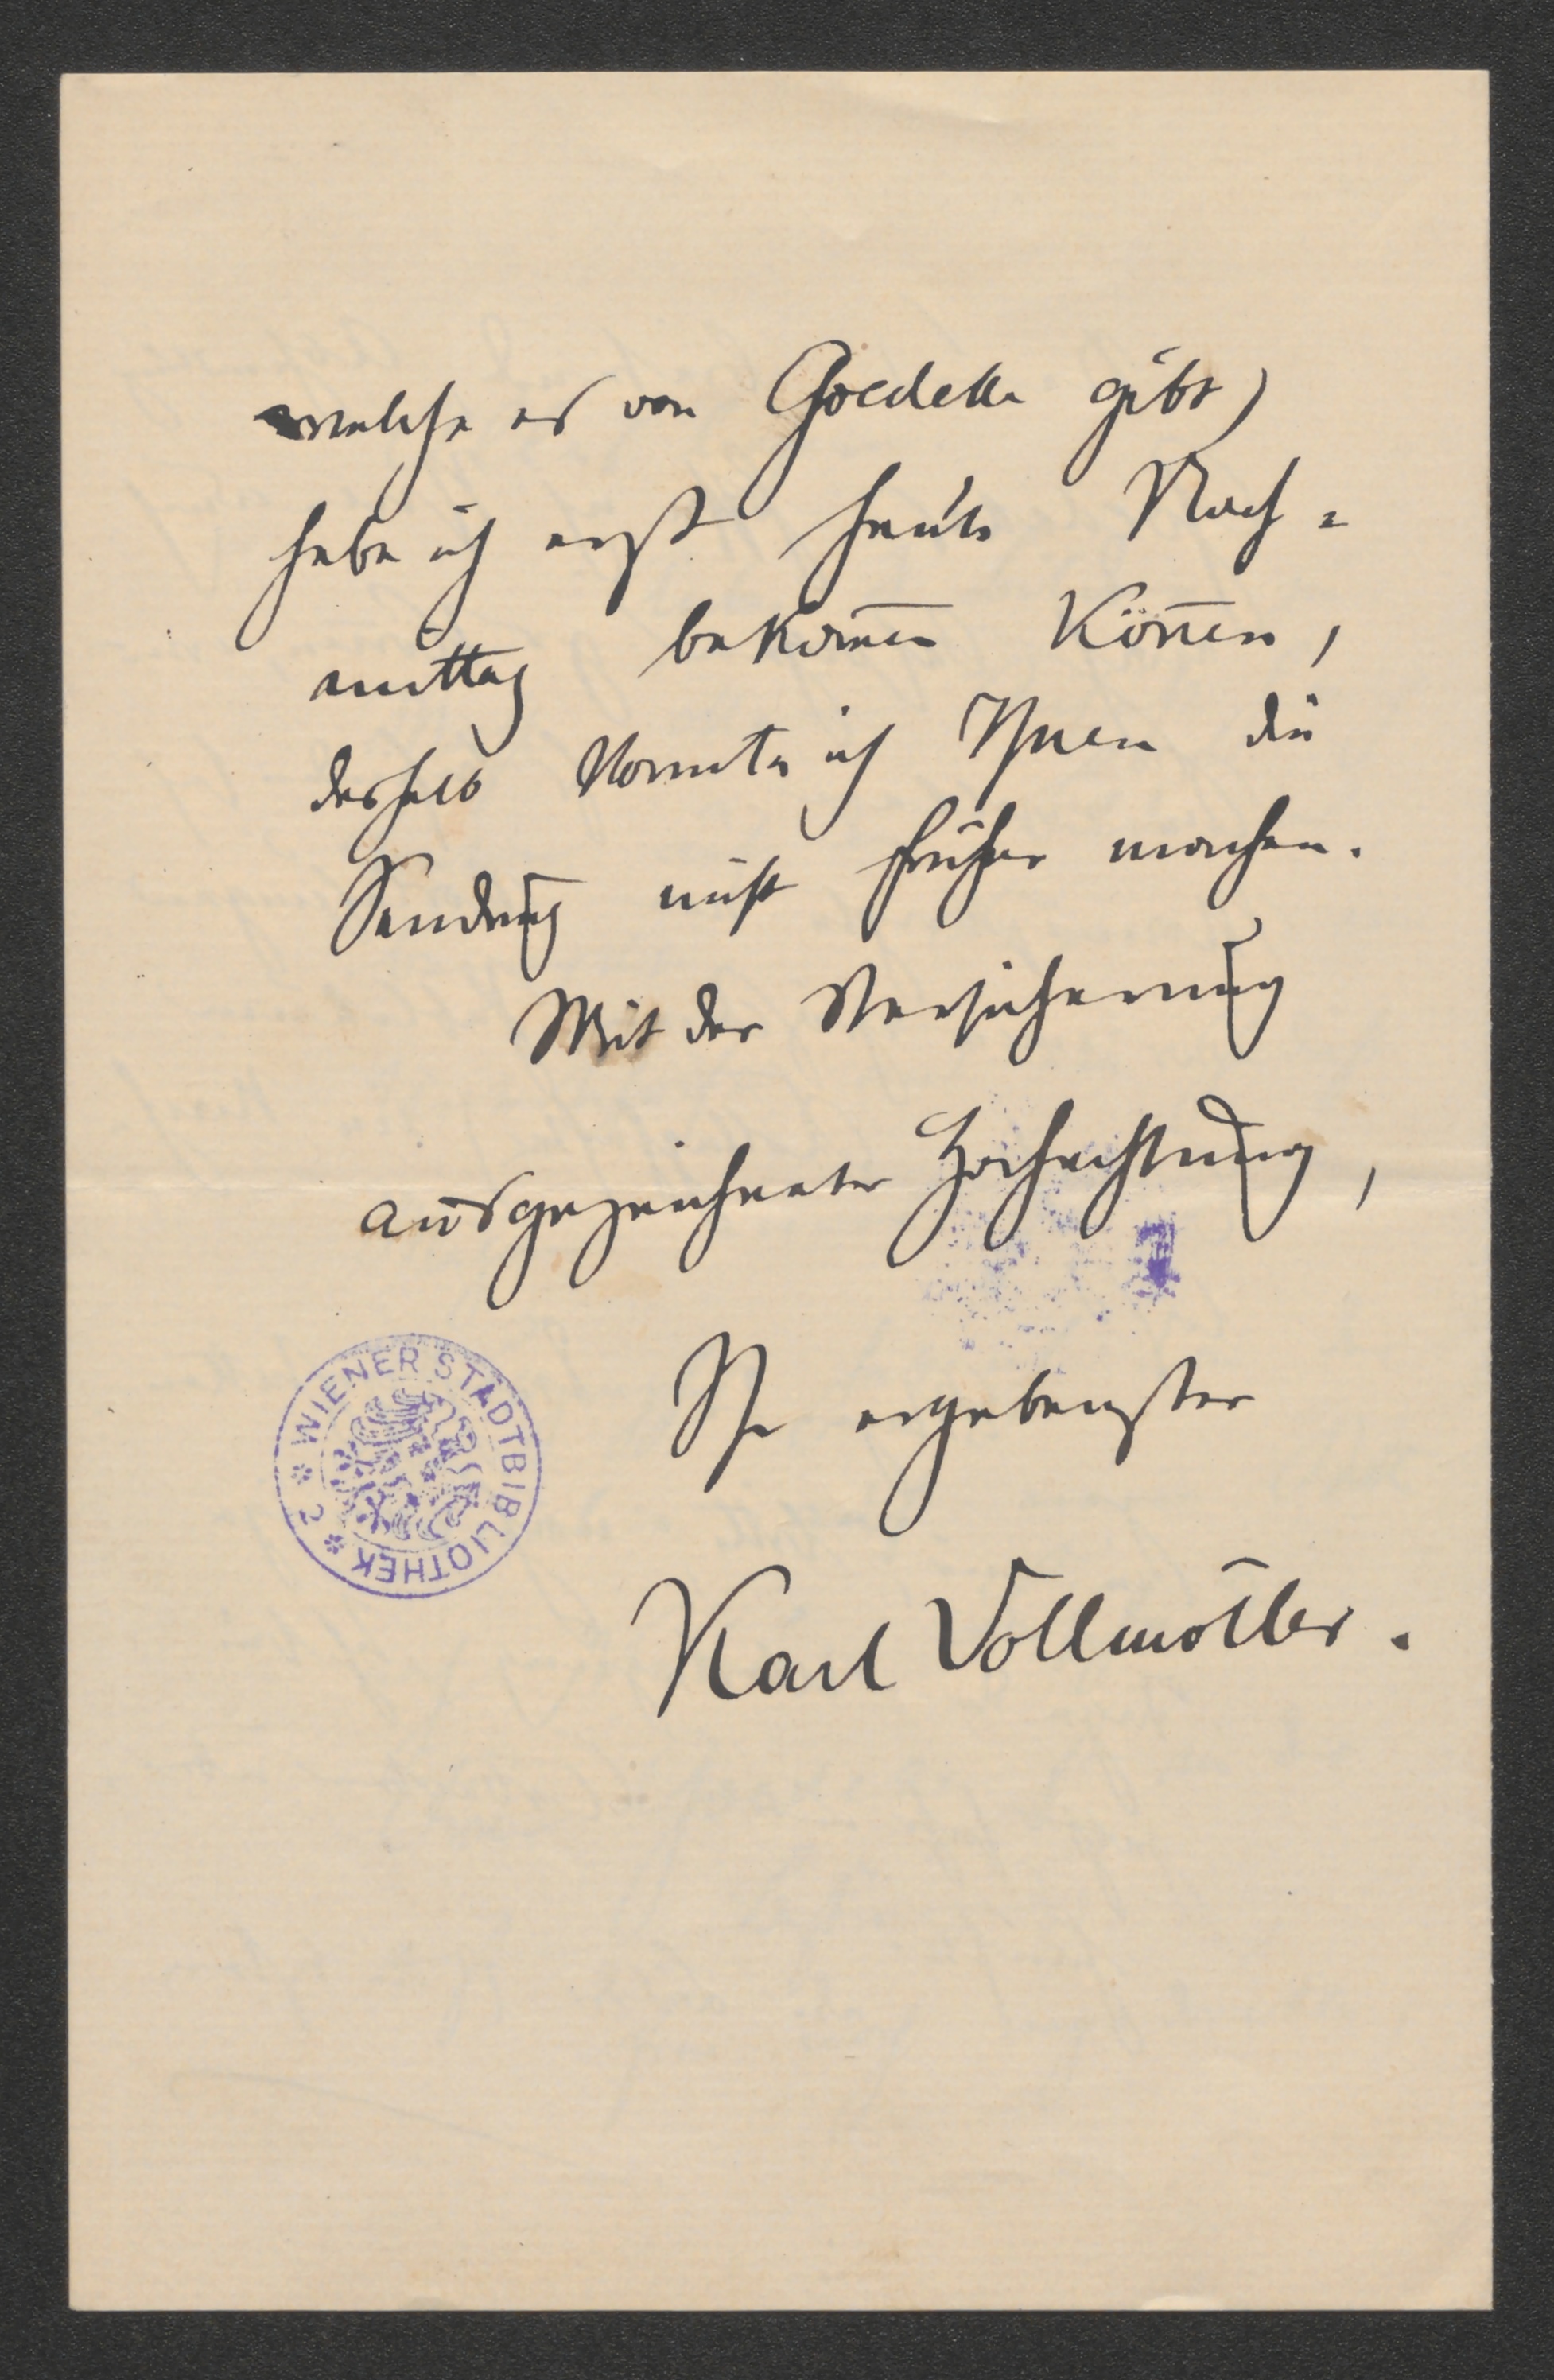 welche es von Goedeke gibt)
habe ich erst heute Nach=
mittag bekom̅en kön̅en,
deshalb konnte ich Ihnen die
Sendung nicht früher machen.
Mit der Versicherung
ausgezeichneter Hochachtung,
Ihr ergebenster
Karl Vollmöller.
* WIENER STADTBIBLIOTHEK * 2